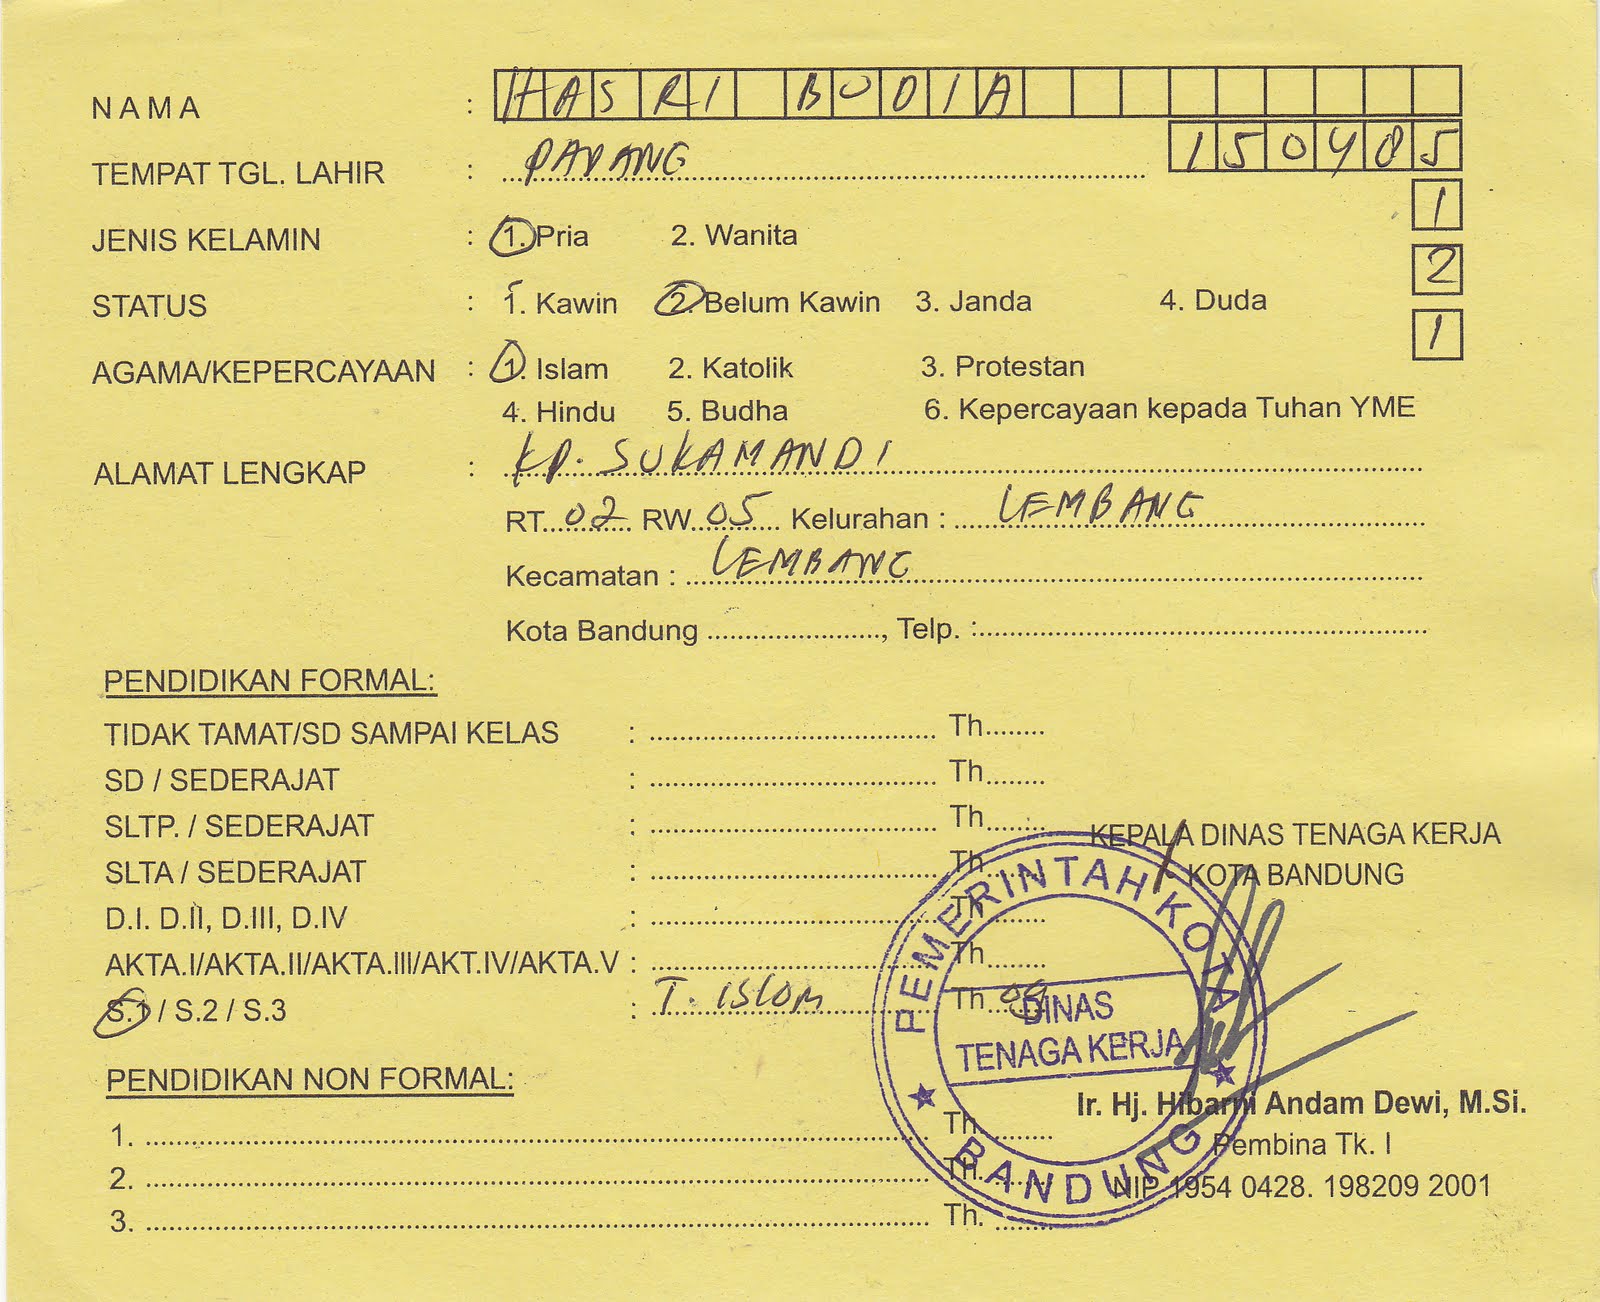 NAMA : HASRI BUDIA
TEMPAT TGL. LAHIR : PADANG 150485
JENIS KELAMIN : 1. Pria 2. Wanita 1
STATUS : 1. Kawin 2. Belum Kawin 3. Janda 4. Duda 2
AGAMA/KEPERCAYAAN : 1. Islam 2. Katolik 3. Protestan 1
4. Hindu 5. Budha 6. Kepercayaan kepada Tuhan YME
ALAMAT LENGKAP : KP. SUKAMANDI
RT. 02 RW. 05 Kelurahan : LEMBANG
Kecamatan : LEMBANG
Kota Bandung ......................, Telp. :..........................
PENDIDIKAN FORMAL:
TIDAK TAMAT/SD SAMPAI KELAS : .......................... Th........
SD / SEDERAJAT : .......................... Th........
SLTP. / SEDERAJAT : .......................... Th........
KEPALA DINAS TENAGA KERJA
SLTA / SEDERAJAT : .......................... Th........
KOTA BANDUNG
D.I. D.II, D.III, D.IV : .......................... Th........
AKTA.I/AKTA.II/AKTA.III/AKT.IV/AKTA.V : .......................... Th........
S.1 / S.2 / S.3 : T. Islam Th. 09
PEMERINTAH KOTA
DINAS
TENAGA KERJA
BANDUNG
PENDIDIKAN NON FORMAL:
Ir. Hj. Hibarni Andam Dewi, M.Si.
1. .......................... Th.........
Pembina Tk. I
2. .......................... Th.........
NIP 1954 0428. 198209 2001
3. .......................... Th. ........